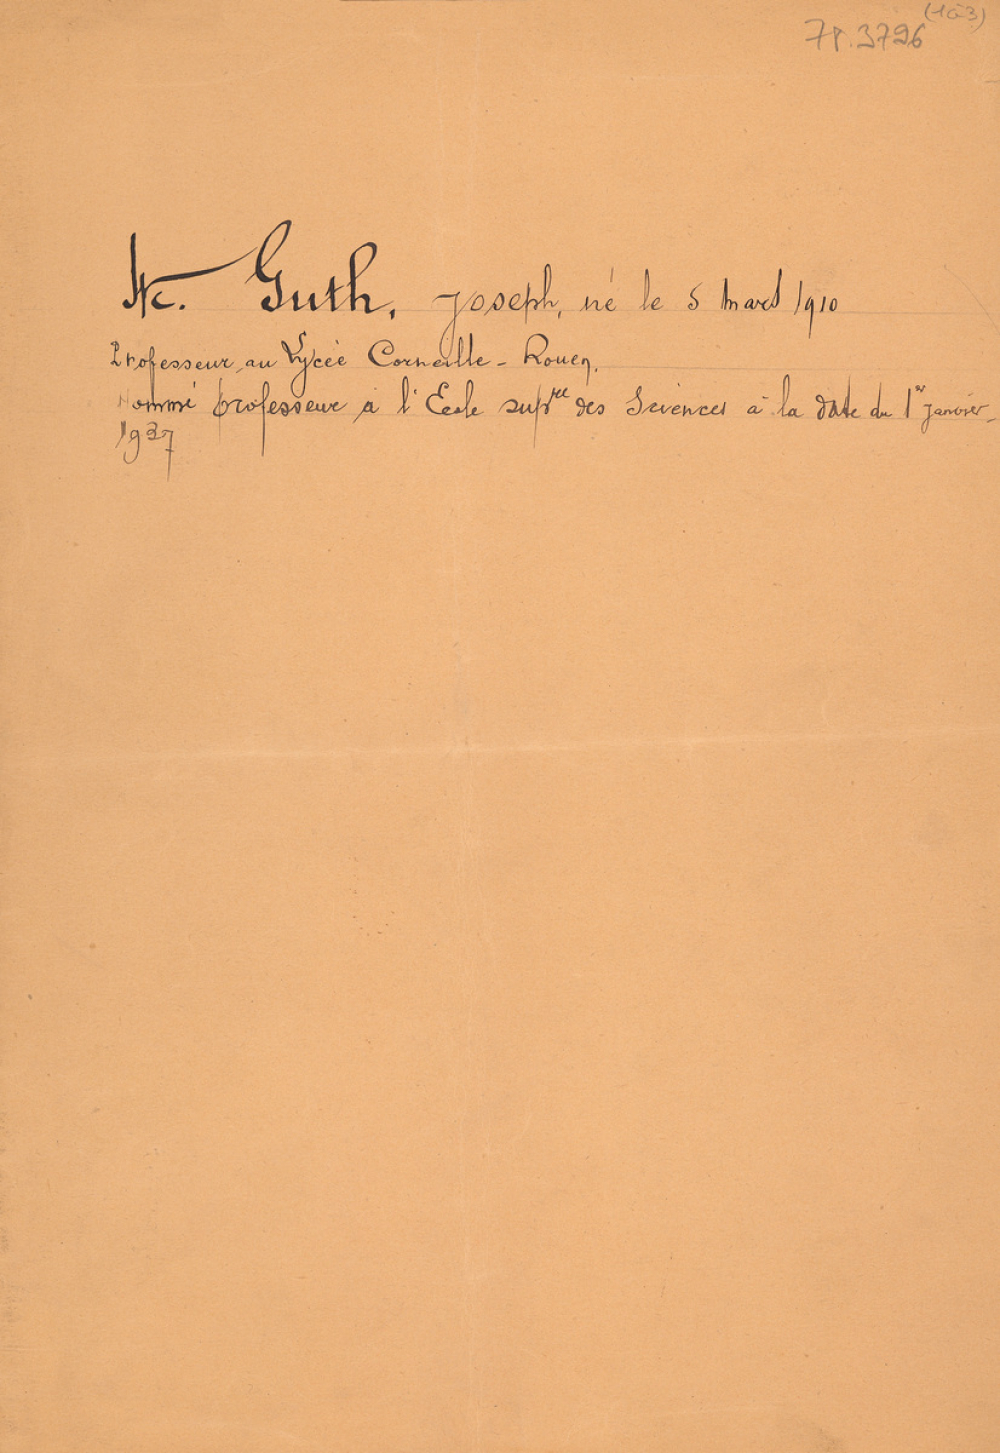 (1à3)
7P.3796
Mr. Guth, Joseph, né le 5 mars 1910
Professeur au Lycée Corneille - Rouen.
Nommé professeur à l'Ecole supre des Sciences à la date du 1er janvier
1937